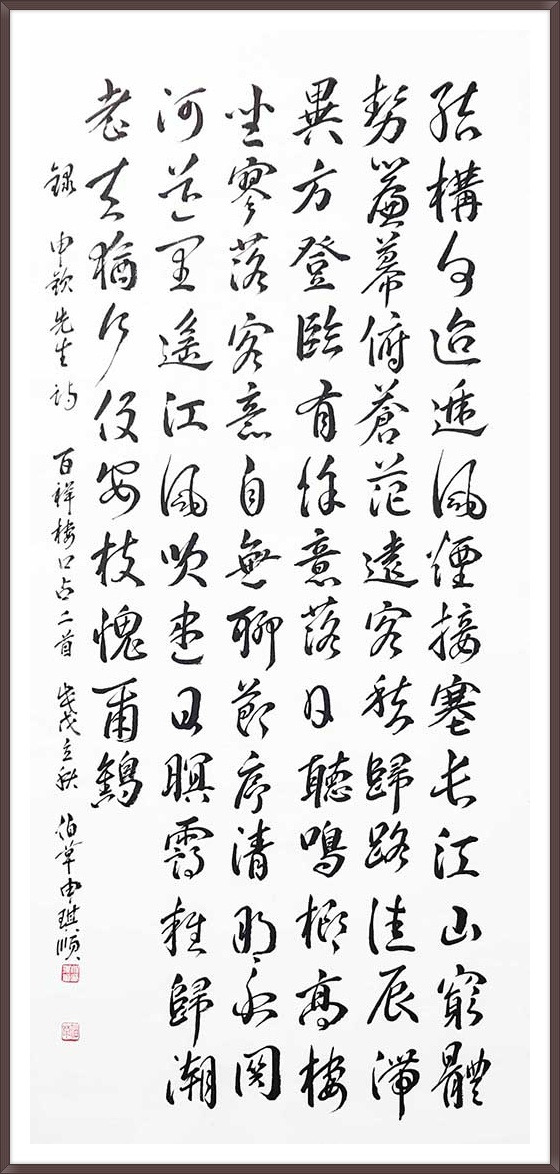 結構何迢遞風煙接塞長江山窮體
勢簾幕俯蒼茫遠客愁歸路佳辰滯
異方登臨有餘意落日聽鳴榔高樓
坐寥落客意自無聊節序清明永關
河道里遙江風吹盡日暝靄雜歸潮
老去猶行役安枝愧爾鷦
錄 申欽先生詩 百祥樓口占二首 戊戌立秋 伯草申琪順